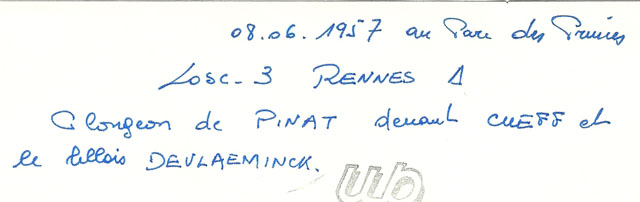 08.06.1957 au Parc des Princes
LOSC - 3 RENNES 1
Plongeon de PINAT devant CUEFF et
le lillois DEVLAEMINCK.